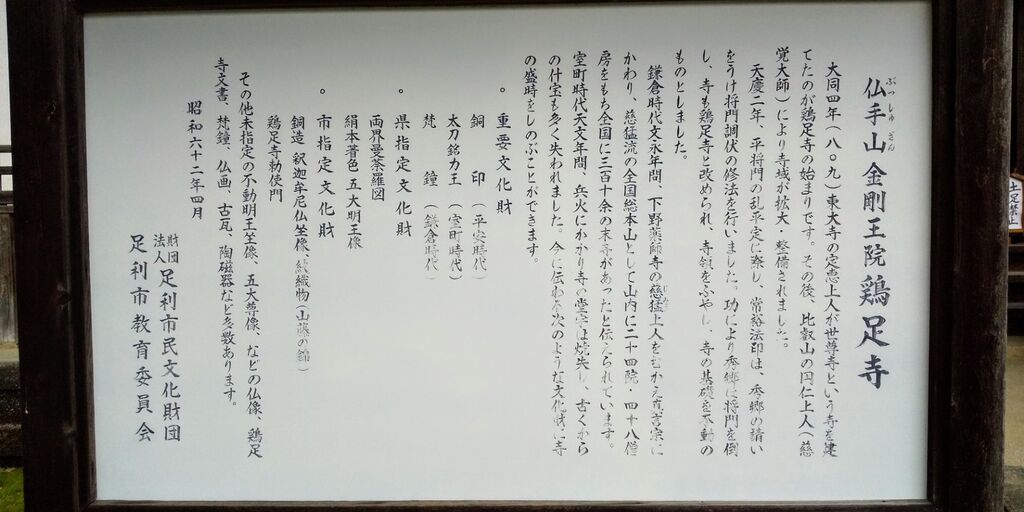 仏手山金剛王院鶏足寺
ぶっしゅざん
大同四年(八〇九)東大寺の定恵上人が世尊寺という寺を建
てたのが鶏足寺の始まりです。その後、比叡山の円仁上人(慈
覚大師)により寺域が拡大・整備されました。
天慶二年、平将門の乱平定に際し、常裕法印は、秀郷の請い
をうけ将門調伏の修法を行いました。功により秀郷は将門を倒
し、寺も鶏足寺と改められ、寺領をふやし、寺の基礎を不動の
ものとしました。
鎌倉時代文永年間、下野薬師寺の慈猛上人をむかえ真言宗に
かわり、慈猛流の全国総本山として山内に二十四院・四十八僧
房をもち全国に三百十余の末寺があったと伝えられています。
室町時代天文年間、兵火にかかり寺の堂宇は焼失し、古くから
の什宝も多く失われました。今に伝わる次のような文化財に寺
の盛時をしのぶことができます。
○ 重要文化財
銅印(平安時代)
太刀銘力王(室町時代)
梵鐘(鎌倉時代)
○ 県指定文化財
両界曼荼羅図
絹本着色 五大明王像
○ 市指定文化財
銅造 釈迦牟尼仏坐像、紙織物(山藤の錦)
鶏足寺勅使門
その他未指定の不動明王坐像、五大尊像、などの仏像、鶏足
寺文書、梵鐘、仏画、古瓦、陶磁器など多数あります。
昭和六十二年四月
財団法人 足利市民文化財団
足利市教育委員会